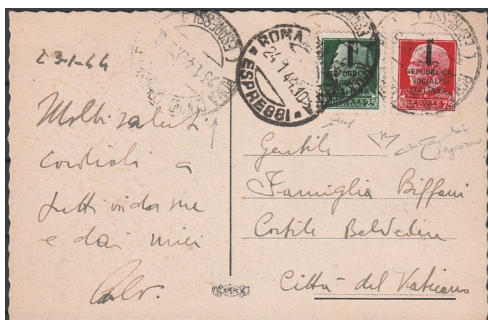 23-1-44
Molti saluti
cordiali a
tutti voi da me
e dai miei
ROMA
24.1.44.10
ESPRESSI
REPUBBLICA
SOCIALE
ITALIANA
25
REPUBBLICA
SOCIALE
ITALIANA
75
Gentile
Famiglia Biffani
Cortile Belvedere
Città del Vaticano